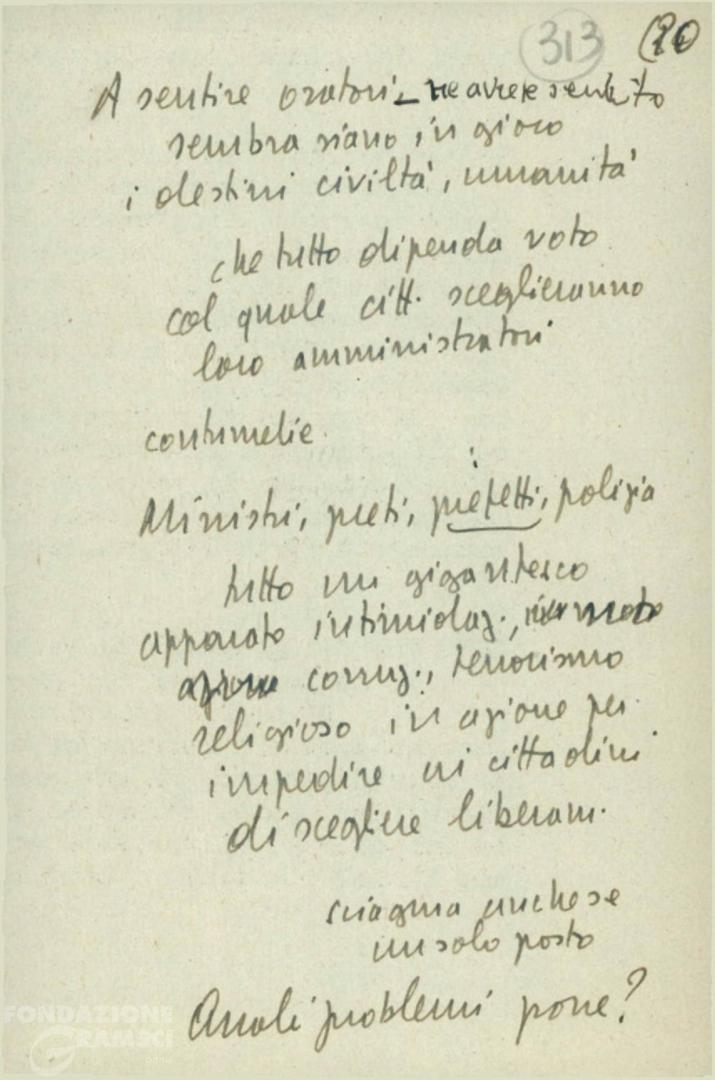 313 (20
A sentire oratori - ne avrete sentito
sembra siano in gioco
i destini civiltà, umanità
che tutto dipenda voto
col quale citt. sceglieranno
loro amministratori
contumelie
Ministri, preti, prefetti, polizia
tutto un gigantesco
apparato intimidaz.,
corruz., terrorismo
religioso in azione per
impedire ai cittadini
di scegliere liberam.
sciagura anche se
un solo posto
Quali problemi pone?
FONDAZIONE
GRAMSCI